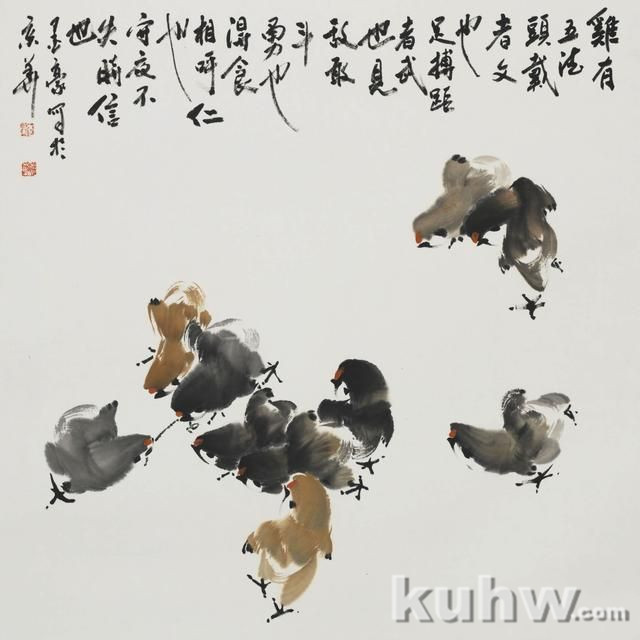 雞有
五德
頭戴
者文
也
足搏距
者武
也見
敌敢
斗
勇也
得食
相呼仁
也
守夜不
失時信
也
豪写於
京華
kuhw.com